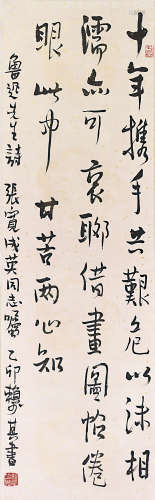 十年携手共艰危以沫相
濡亦可哀聊借畫圖怡倦
眼此中甘苦两心知
魯迅先生詩 張寬成英同志囑 乙卯 賴少其書